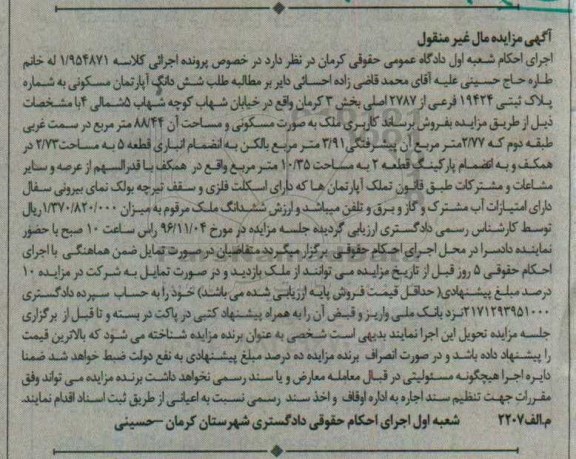 آگهی مزایده مال غیر منقول
اجرای احکام شعبه اول دادگاه عمومی حقوقی کرمان در نظر دارد در خصوص پرونده اجرائی کلاسه ۱/۹۵۴۸۷۱ له خانم
طاره حاج حسینی علیه آقای محمد قاضی زاده احسائی دایر بر مطالبه طلب شش دانگ آپارتمان مسکونی به شماره
پلاک ثبتی ۱۹۴۲۴ فرعی از ۲۷۸۷ اصلی بخش ۳ کرمان واقع در خیابان شهاب کوچه شهاب ۵شمالی ۴با مشخصات
ذیل از طریق مزایده بفروش برساند کاربری ملک به صورت مسکونی و مساحت آن ۸۸/۴۴ متر مربع در سمت غربی
طبقه دوم که ۲/۷۷متر مربع آن پیشرفتگی۳/۹۱ متر مربع بالکن به انضمام انباری قطعه ۵ به مساحت۲/۷۳ در
همکف و به انضمام پارکینگ قطعه ۲ به مساحت ۱۰/۳۵ متر مربع واقع در همکف با قدرالسهم از عرصه و سایر
مشاعات و مشترکات طبق قانون تملک آپارتمان ها که دارای اسکلت فلزی و سقف تیرچه بولک نمای بیرونی سفال
دارای امتیازات آب مشترک و گاز و برق و تلفن میباشد و ارزش ششدانگ ملک مرقوم به میزان ۱/۳۷۰/۸۲۰/۰۰۰ریال
توسط کارشناس رسمی دادگستری ارزیابی گردیده جلسه مزایده در مورخ ۹۶/۱۱/۰۴ راس ساعت ۱۰ صبح با حضور
نماینده دادسرا در محل اجرای احکام حقوقی برگزار میگردد متقاضیان در صورت تمایل ضمن هماهنگی با اجرای
احکام حقوقی ۵ روز قبل از تاریخ مزایده می توانند از ملک بازدید و در صورت تمایل به شرکت در مزایده ۱۰
درصد مبلغ پیشنهادی( حداقل قیمت فروش پایه ارزیابی شده می باشد) خود را به حساب سپرده دادگستری
۲۱۷۱۲۹۳۹۵۱۰۰۰نزد بانک ملی واریز و قبض آن را به همراه پیشنهاد کتبی در پاکت در بسته و تا قبل از برگزاری
جلسه مزایده تحویل این اجرا نمایند بدیهی است شخصی به عنوان برنده مزایده شناخته می شود که بالاترین قیمت
را پیشنهاد داده باشد و در صورت انصراف برنده مزایده ده درصد مبلغ پیشنهادی به نفع دولت ضبط خواهد شد ضمنا
دایره اجرا هیچگونه مسئولیتی در قبال معامله معارض و یا سند رسمی نخواهد داشت برنده مزایده می تواند وفق
مقررات جهت تنظیم سند اجاره به اداره اوقاف و اخذ سند رسمی نسبت به اعیانی از طریق ثبت اسناد اقدام نمایند.
م.الف۲۲۰۷ شعبه اول اجرای احکام حقوقی دادگستری شهرستان کرمان -حسینی